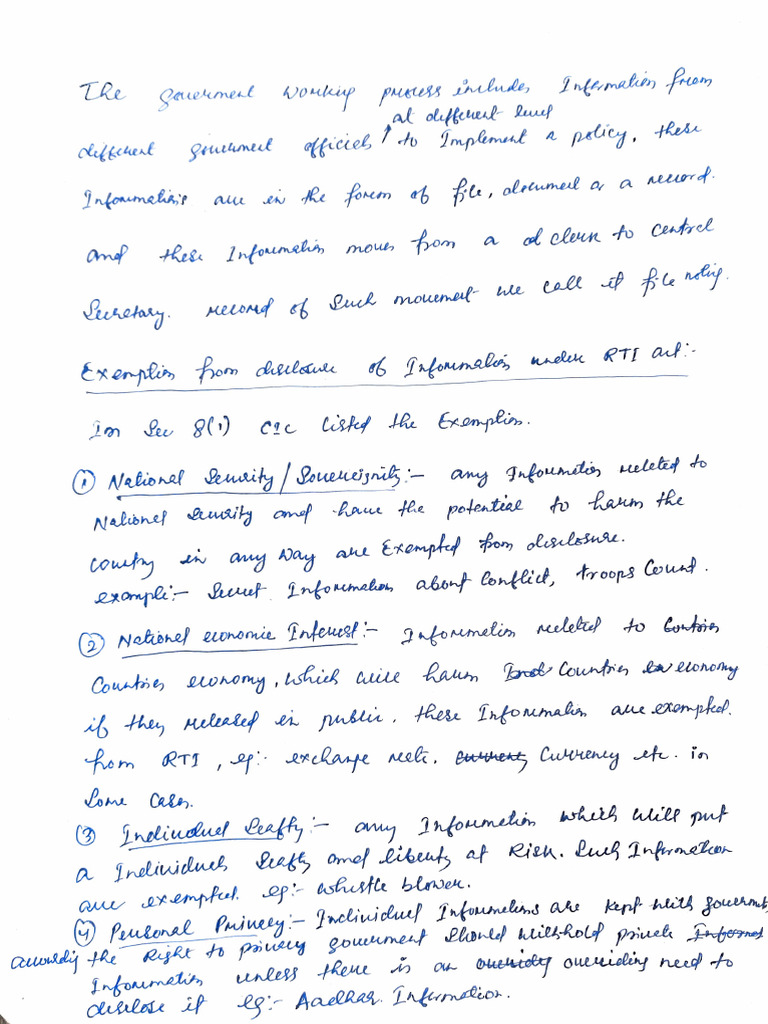 The government working process includes Information from
at different level
different government officials to Implement a policy, these
Informations are in the form of file, document or a record.
and these Information moves from a clerk to central
Secretary. record of Such movement we call it file noting.
Exemption from disclosure of Information under RTI act:-
In Sec 8(1) CIC listed the Exemption.
① National Security/Sovereignity:- any Information related to
National Security and have the potential to harm the
country in any way are Exempted from disclosure.
example:- Secret Information about Conflict, troops Count.
② National economic Interest:- Information related to
Countries economy, which will harm Countries economy
if they released in public. these Information are exempted.
from RTI, eg:- exchange rate. Currency etc. in
Some Cases.
③ Individual Seafty:- any Information which will put
a Individual Seafty and liberty at Risk. Such Information
are exempted. eg:- whistle blower.
④ Personal Privacy:- Individual Informations are kept with government,
according the Right to privacy government Should withhold private
Information unless there is an overriding need to
disclose it eg:- Aadhar Information.